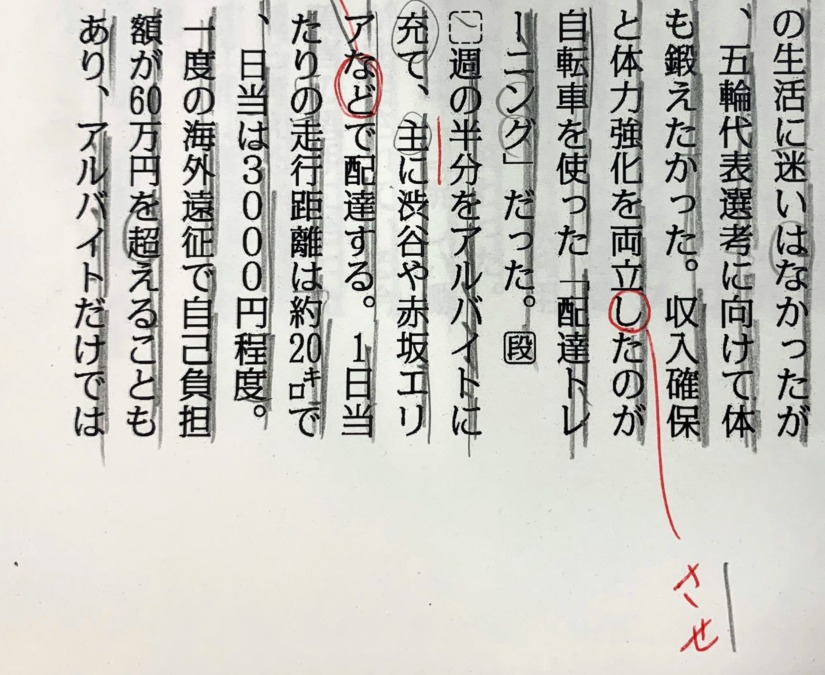 の生活に迷いはなかったが
、五輪代表選考に向けて体
も鍛えたかった。収入確保
と体力強化を両立したのが
自転車を使った「配達トレ
ーニング」だった。段
週の半分をアルバイトに
充て、主に渋谷や赤坂エリ
アなどで配達する。1日当
たりの走行距離は約20㌔で
、日当は3000円程度。
一度の海外遠征で自己負担
額が60万円を超えることも
あり、アルバイトだけでは
させ